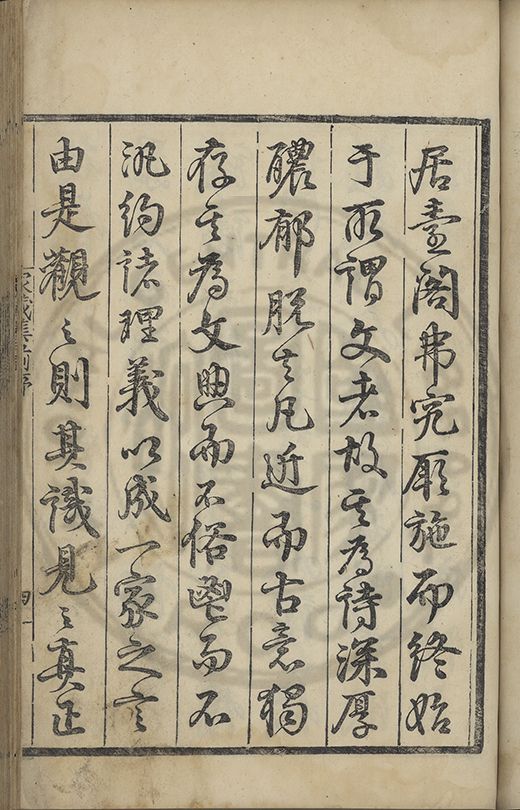 居臺閣弗究厥施而終始
于所謂文者故其為詩深厚
醲郁脱去凡近而古意獨
存其為文典而不俗鬯而不
汎約諸理義以成一家之言
由是觀之則其識見之真正
集前序
四